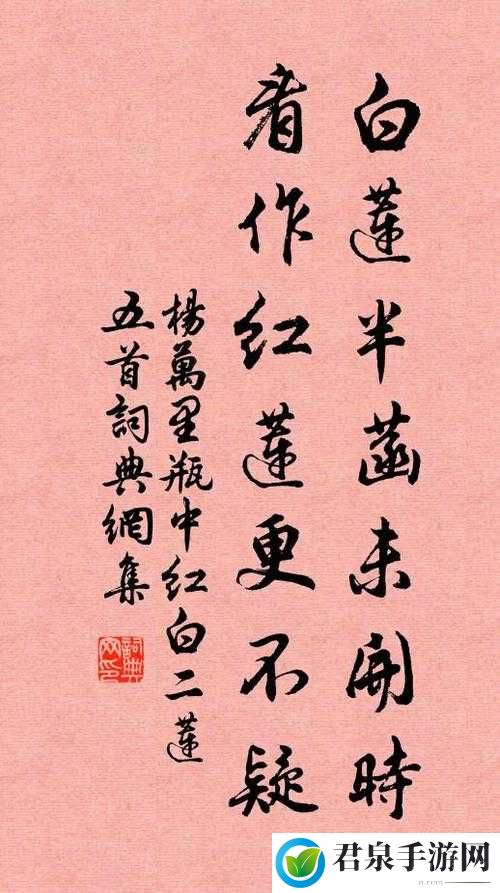 白蓮半菡未開時
看作紅蓮更不疑
楊萬里瓶中紅白二蓮
五首詞典網集
詞典网印
君泉手游网